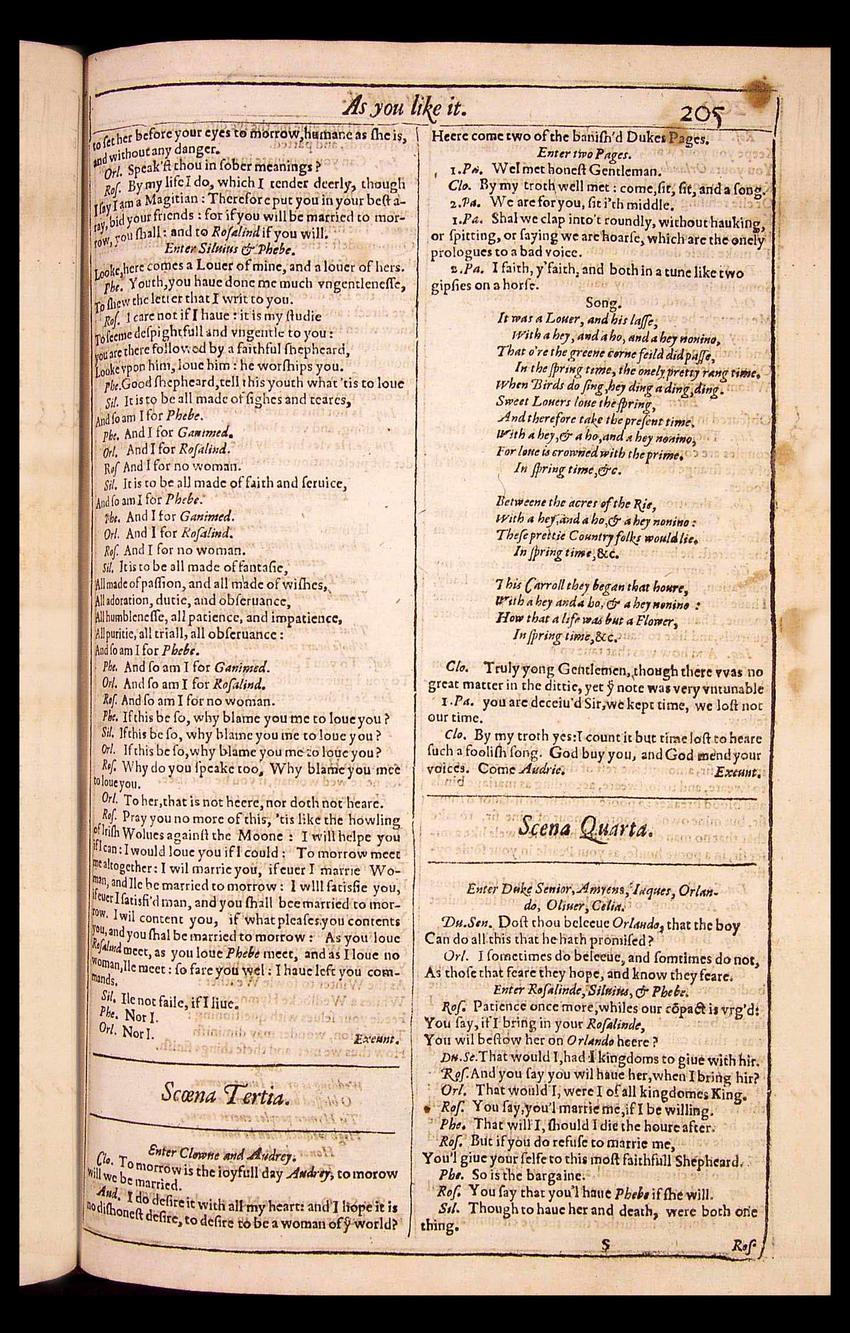 As you like it.
205
to set her before your eyes to morrow, humane as she is,
and without any danger.
Orl. Speak'st thou in sober meanings?
Ros. By my life I do, which I tender deerly, though
I say I am a Magitian: Therefore put you in your best a-
ray, bid your friends: for if you will be married to mor-
row, you shall: and to Rosalind if you will.
Enter Siluius & Phebe.
Looke, here comes a Louer of mine, and a louer of hers.
Phe. Youth, you haue done me much vngentlenesse,
To shew the letter that I writ to you.
Ros. I care not if I haue: it is my studie
To seeme despightfull and vngentle to you:
you are there followed by a faithful shepheard,
Looke vpon him, loue him: he worships you.
Phe. Good shepheard, tell this youth what 'tis to loue
Sil. It is to be all made of sighes and teares,
And so am I for Phebe.
Phe. And I for Ganimed.
Orl. And I for Rosalind.
Ros And I for no woman.
Sil. It is to be all made of faith and seruice,
And so am I for Phebe.
Phe. And I for Ganimed.
Orl. And I for Rosalind.
Ros. And I for no woman.
Sil. It is to be all made of fantasie,
All made of passion, and all made of wishes,
All adoration, dutie, and obseruance,
All humblenesse, all patience, and impatience,
All puritie, all triall, all obseruance:
And so am I for Phebe.
Phe. And so am I for Ganimed.
Orl. And so am I for Rosalind.
Ros. And so am I for no woman.
Phe. If this be so, why blame you me to loue you?
Sil. If this be so, why blame you me to loue you?
Orl. If this be so, why blame you me to loue you?
Ros. Why do you speake too, Why blame you mee
to loue you.
Orl. To her, that is not heere, nor doth not heare.
Ros. Pray you no more of this, 'tis like the howling
of Irish Wolues against the Moone: I will helpe you
if I can: I would loue you if I could: To morrow meet
me altogether: I wil marrie you, if euer I marrie Wo-
man, and Ile be married to morrow: I will satisfie you,
if euer I satisfi'd man, and you shall bee married to mor-
row. I wil content you, if what pleases you contents
you, and you shal be married to morrow: As you loue
Rosalind meet, as you loue Phebe meet, and as I loue no
woman, Ile meet: so fare you wel: I haue left you com-
mands.
Sil. Ile not faile, if I liue.
Phe. Nor I.
Orl. Nor I.
Exeunt.
Scœna Tertia.
Enter Clowne and Audrey.
Clo. To morrow is the ioyfull day Audrey, to morow
will we be married.
Aud. I do desire it with all my heart: and I hope it is
no dishonest desire, to desire to be a woman of yͤ world?
Heere come two of the banish'd Dukes Pages.
Enter two Pages.
1.Pa. Wel met honest Gentleman.
Clo. By my troth well met: come, sit, sit, and a song.
2.Pa. We are for you, sit i'th middle.
1.Pa. Shal we clap into't roundly, without hauking,
or spitting, or saying we are hoarse, which are the onely
prologues to a bad voice.
2.Pa. I faith, y'faith, and both in a tune like two
gipsies on a horse.
Song.
It was a Louer, and his lasse,
With a hey, and a ho, and a hey nonino,
That o're the greene corne feild did passe,
In the spring time, the onely pretty rang time.
When Birds do sing, hey ding a ding, ding.
Sweet Louers loue the spring,
And therefore take the present time.
With a hey, & a ho, and a hey nonino,
For loue is crowned with the prime.
In spring time, &c.
Betweene the acres of the Rie,
With a hey, and a ho, & a hey nonino:
These prettie Country folks would lie.
In spring time, &c.
This Carroll they began that houre,
With a hey and a ho, & a hey nonino:
How that a life was but a Flower,
In spring time, &c.
Clo. Truly yong Gentlemen, though there vvas no
great matter in the dittie, yet yͤ note was very vntunable
1.Pa. you are deceiu'd Sir, we kept time, we lost not
our time.
Clo. By my troth yes: I count it but time lost to heare
such a foolish song. God buy you, and God mend your
voices. Come Audrie.
Exeunt.
Scena Quarta.
Enter Duke Senior, Amyens, Iaques, Orlan-
do, Oliuer, Celia.
Du.Sen. Dost thou beleeue Orlando, that the boy
Can do all this that he hath promised?
Orl. I sometimes do beleeue, and somtimes do not,
As those that feare they hope, and know they feare.
Enter Rosalinde, Siluius, & Phebe.
Ros. Patience once more, whiles our cōpact is vrg'd:
You say, if I bring in your Rosalinde,
You wil bestow her on Orlando heere?
Du.Se. That would I, had I kingdoms to giue with hir.
Ros. And you say you wil haue her, when I bring hir?
Orl. That would I, were I of all kingdomes King.
Ros. You say, you'l marrie me, if I be willing.
Phe. That will I, should I die the houre after.
Ros. But if you do refuse to marrie me,
You'l giue your selfe to this most faithfull Shepheard.
Phe. So is the bargaine.
Ros. You say that you'l haue Phebe if she will.
Sil. Though to haue her and death, were both one
thing.
S
Ros.